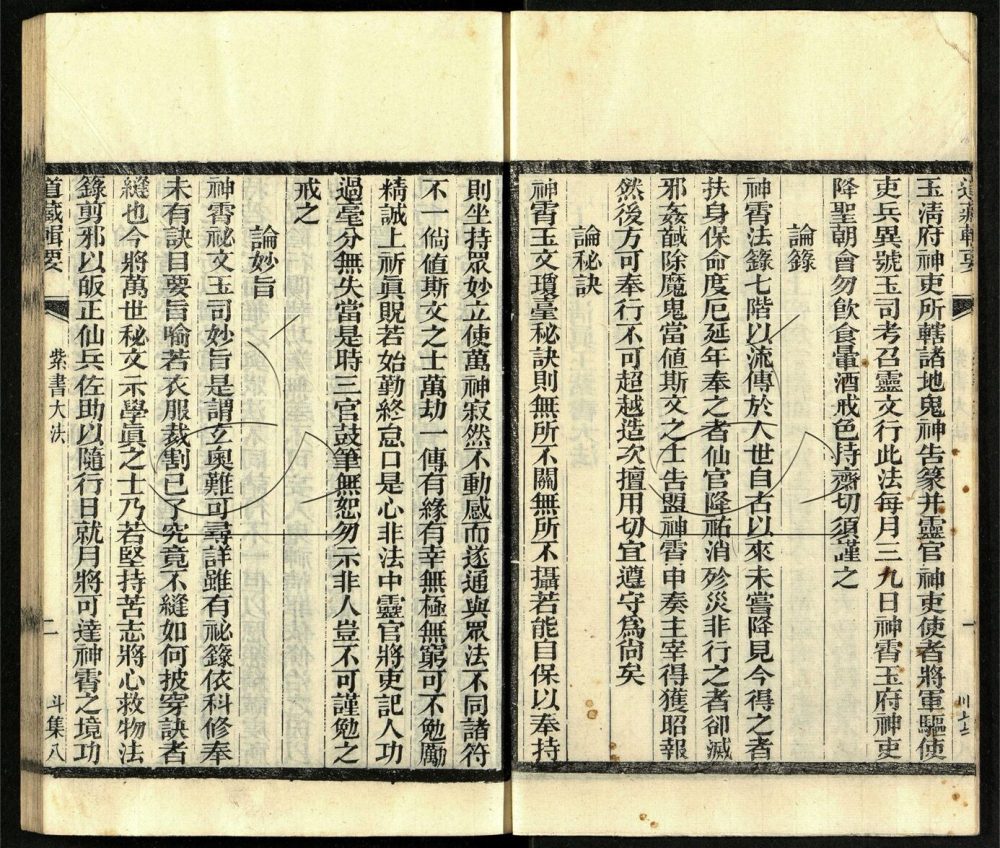 玉清府神吏所轄諸地鬼神告篆并靈官神吏使者將軍驅使
吏兵異號玉司考召靈文行此法每月三九日神霄玉府神吏
降聖朝會勿飲食葷酒戒色持齋切須謹之
論籙
神霄法籙七階以流傳於人世自古以來未嘗降見今得之者
扶身保命度厄延年奉之者仙官降祐消殄災非行之者卻滅
邪姦馘除魔鬼當値斯文之士告盟神霄申奏主宰得獲昭報
然後方可奉行不可超越造次擅用切宜遵守爲尙矣
論秘訣
神霄玉文瓊臺秘訣則無所不關無所不攝若能自保以奉持
則坐持眾妙立使萬神寂然不動感而遂通與眾法不同諸符
不一倘値斯文之士萬劫一傳有緣有幸無極無窮可不勉勵
精誠上祈眞貺若始勤終怠口是心非法中靈官將吏記人功
過毫分無失當是時三官鼓筆無恕勿示非人豈不可謹勉之
戒之
論妙旨
神霄祕文玉司妙旨是謂玄奧難可尋詳雖有祕籙依科修奉
未有訣目要旨喻若衣服裁割已了究竟不縫如何披穿訣者
縫也今將萬世秘文一示學眞之士乃若堅持苦志將心救物法
籙剪邪以皈正仙兵佐助以隨行日就月將可達神霄之境功
道藏輯要
紫書大法
二
斗集八